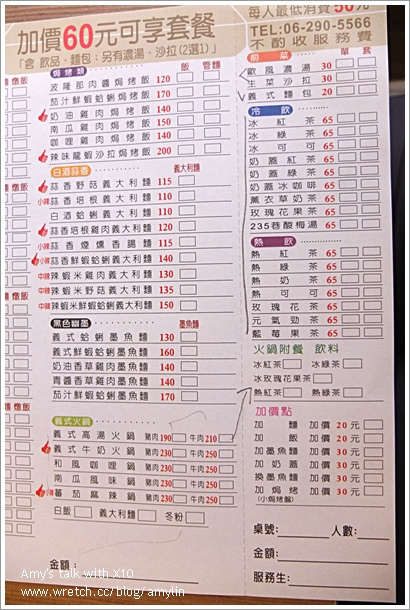 加價60元可享套餐
「含 飲品、麵包；另有濃湯、沙拉(2選1)」
焗烤類 飯 管麵
波隆那肉醬焗烤飯 120
茄汁鮮蝦蛤蜊焗烤飯 170
奶油雞肉焗烤飯 140
南瓜雞肉焗烤飯 140
咖哩雞肉焗烤飯 140
辣味龍蝦沙拉焗烤飯 200
白酒蒜香 義大利麵
蒜香野菇義大利麵 115
小辣 蒜香培根義大利麵 110
白酒蛤蜊義大利麵 110
蒜香培根雞肉義大利麵 120
小辣 蒜香煙燻香腸麵 115
小辣 蒜香鮮蝦蛤蜊義大利麵 140
中辣 辣蝦米雞肉義大利麵 130
中辣 辣蝦米野菇義大利麵 135
中辣 辣蝦米鮮蝦蛤蜊義大利麵 150
黑色幽墨 墨魚麵
義式蛤蜊墨魚麵 130
義式鮮蝦蛤蜊墨魚麵 160
奶油香草雞肉墨魚麵 140
青醬香草雞肉墨魚麵 140
茄汁鮮蝦蛤蜊墨魚麵 170
義式火鍋
義式高湯火鍋 豬肉190 牛肉210
義式牛奶火鍋 豬肉230 牛肉250
和風咖哩鍋 豬肉230 牛肉250
南瓜風味鍋 豬肉230 牛肉250
小辣 蕃茄麻辣鍋 豬肉230 牛肉250
白飯 義大利麵 冬粉
金額：
每人最低消費 50元
TEL:06-290-5566
不酌收服務費
前菜 單 套
歐風濃湯 30
生菜沙拉 30
義式麵包 20
冷飲
冰紅茶 65
冰綠茶 65
冰可可 65
奶蓋紅茶 65
奶蓋綠茶 65
奶蓋冰咖啡 65
薰衣草奶茶 65
玫瑰花果茶 65
235巷酸梅湯 65
熱飲
熱紅茶 65
熱綠茶 65
熱奶茶 65
熱可可 65
玫瑰花茶 65
元氣勁茶 65
藍莓果茶 65
火鍋附餐 飲料
冰紅茶 冰綠茶
冰玫瑰花果茶
熱紅茶 熱綠茶
加價點
加麵 加價20元
加飯 加價20元
加墨魚麵 加價30元
加奶蓋 加價30元
換墨魚麵 加價30元
加焗烤 加價30元
(小焗烤盤)
桌號： 人數：
金額：
服務生：
Amy's talk with X10
www.wretch.cc/blog/amylin